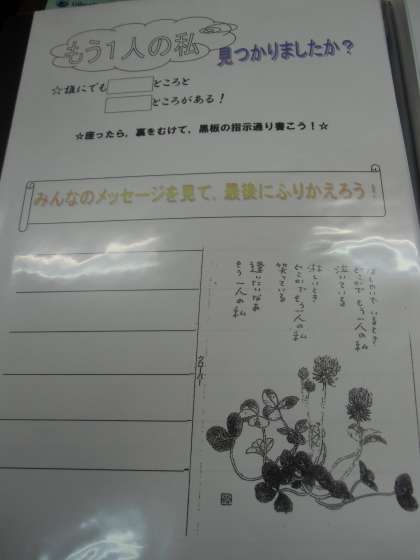 もう1人の私
見つかりましたか?
☆誰にでも　　　どころと
　　　どころがある!
☆座ったら、裏をむけて、黒板の指示通り書こう!☆
みんなのメッセージを見て、最後にふりかえろう!
どこかで もう一人の私
泣いている
忙しいとき
どこかで もう一人の私
笑っている
逢いたいなあ
もう一人の私